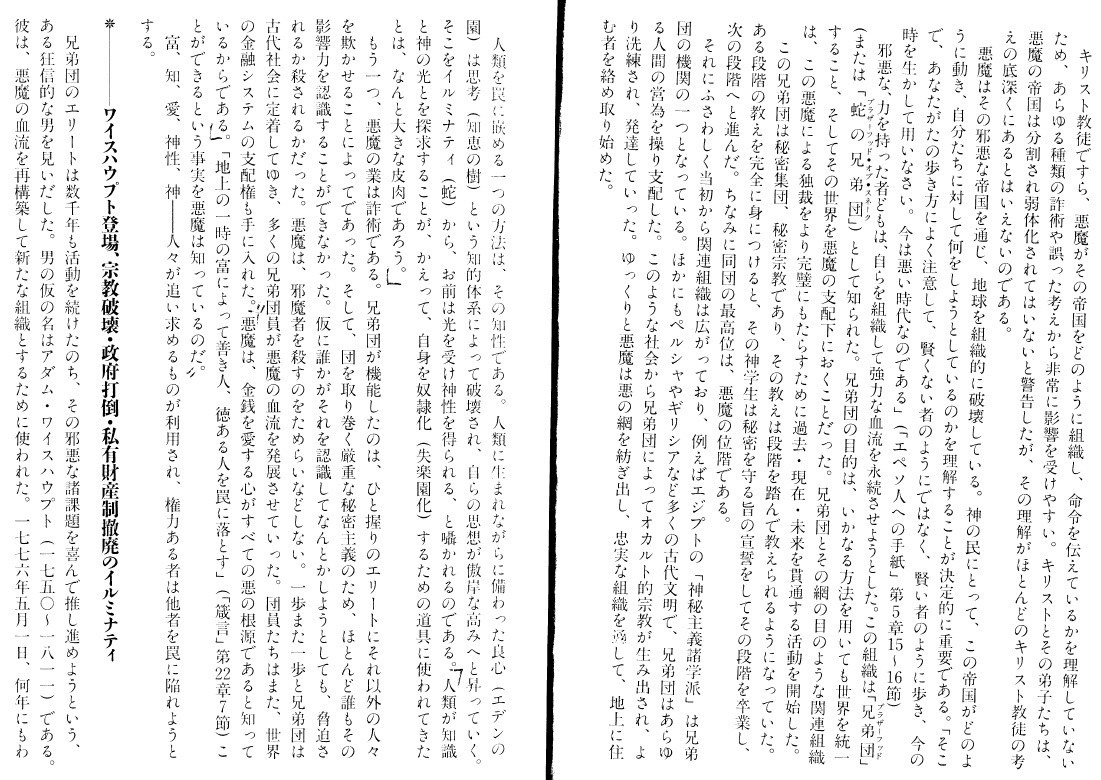 キリスト教徒ですら、悪魔がその帝国をどのように組織し、命令を伝えているかを理解していない
ため、あらゆる種類の詐術や誤った考えから非常に影響を受けやすい。キリストとその弟子たちは、
悪魔の帝国は分割され弱体化されてはいないと警告したが、その理解がほとんどのキリスト教徒の考
えの底深くにあるとはいえないのである。
悪魔はその邪悪な帝国を通じ、地球を組織的に破壊している。神の民にとって、この帝国がどのよ
うに動き、自分たちに対して何をしようとしているのかを理解することが決定的に重要である。「そこ
で、あなたがたの歩き方によく注意して、賢くない者のようにではなく、賢い者のように歩き、今の
時を生かして用いなさい。今は悪い時代なのである」(「エペソ人への手紙」第5章15〜16節)
邪悪な力を持った者どもは、自らを組織して強力な血流を永続させようとした。この組織は「兄弟団」
ブラザーフッド
(または「蛇の兄弟団」)として知られた。兄弟団の目的は、いかなる方法を用いても世界を統一
ブラザーフッド・オブ・スネーク
すること、そしてその世界を悪魔の支配下におくことだった。兄弟団とその網の目のような関連組織
は、この悪魔による独裁をより完璧にもたらすために過去・現在・未来を貫通する活動を開始した。
この兄弟団は秘密集団、秘密宗教であり、その教えは段階を踏んで教えられるようになっていた。
ある段階の教えを完全に身につけると、その神学生は秘密を守る旨の宣誓をしてその段階を卒業し、
次の段階へと進んだ。ちなみに同団の最高位は、悪魔の位階である。
それにふさわしく当初から関連組織は広がっており、例えばエジプトの「神秘主義諸学派」は兄弟
団の機関の一つとなっている。ほかにもペルシャやギリシアなど多くの古代文明で、兄弟団はあらゆ
る人間の営為を操り支配した。このような社会から兄弟団によってオカルト的宗教が生み出され、よ
り洗練され、発達していった。ゆっくりと悪魔は悪の網を紡ぎ出し、忠実な組織を通して、地上に住
む者を絡め取り始めた。
人類を罠に嵌める一つの方法は、その知性である。人類に生まれながらに備わった良心(エデンの
園)は思考(知恵の樹)という知的体系によって破壊され、自らの思想が傲岸な高みへと昇っていく。
そこをイルミナティ(蛇)から、お前は光を受け神性を得られる、と囁かれるのである。人類が知識
と神の光とを探求することが、かえって、自身を奴隷化(失楽園化)するための道具に使われてきた
とは、なんと大きな皮肉であろう。
もう一つ、悪魔の業は詐術である。兄弟団が機能したのは、ひと握りのエリートにそれ以外の人々
を欺かせることによってであった。そして、団を取り巻く厳重な秘密主義のため、ほとんど誰もその
影響力を認識することができなかった。仮に誰かがそれを認識してなんとかしようとしても、脅迫さ
れるか殺されるかだった。悪魔は、邪魔者を殺すのをためらいなどしない。一歩また一歩と兄弟団は
古代社会に定着してゆき、多くの兄弟団員が悪魔の血流を発展させていった。団員たちはまた、世界
の金融システムの支配権も手に入れた。悪魔は、金銭を愛する心がすべての悪の根源であると知って
いるからである。「地上の一時の富によって善き人、徳ある人を罠に落とす」(「箴言」第22章7節)こ
とができるという事実を悪魔は知っているのだ。
富、知、愛、神性、神――人々が追い求めるものが利用され、権力ある者は他者を罠に陥れようと
する。
＊――ワイスハウプト登場、宗教破壊・政府打倒・私有財産制撤廃のイルミナティ
兄弟団のエリートは数千年も活動を続けたのち、その邪悪な諸課題を喜んで推し進めようという、
ある狂信的な男を見いだした。男の仮の名はアダム・ワイスハウプト(一七五〇〜一八一一)である。
彼は、悪魔の血流を再構築して新たな組織とするために使われた。一七七六年五月一日、何年にもわ